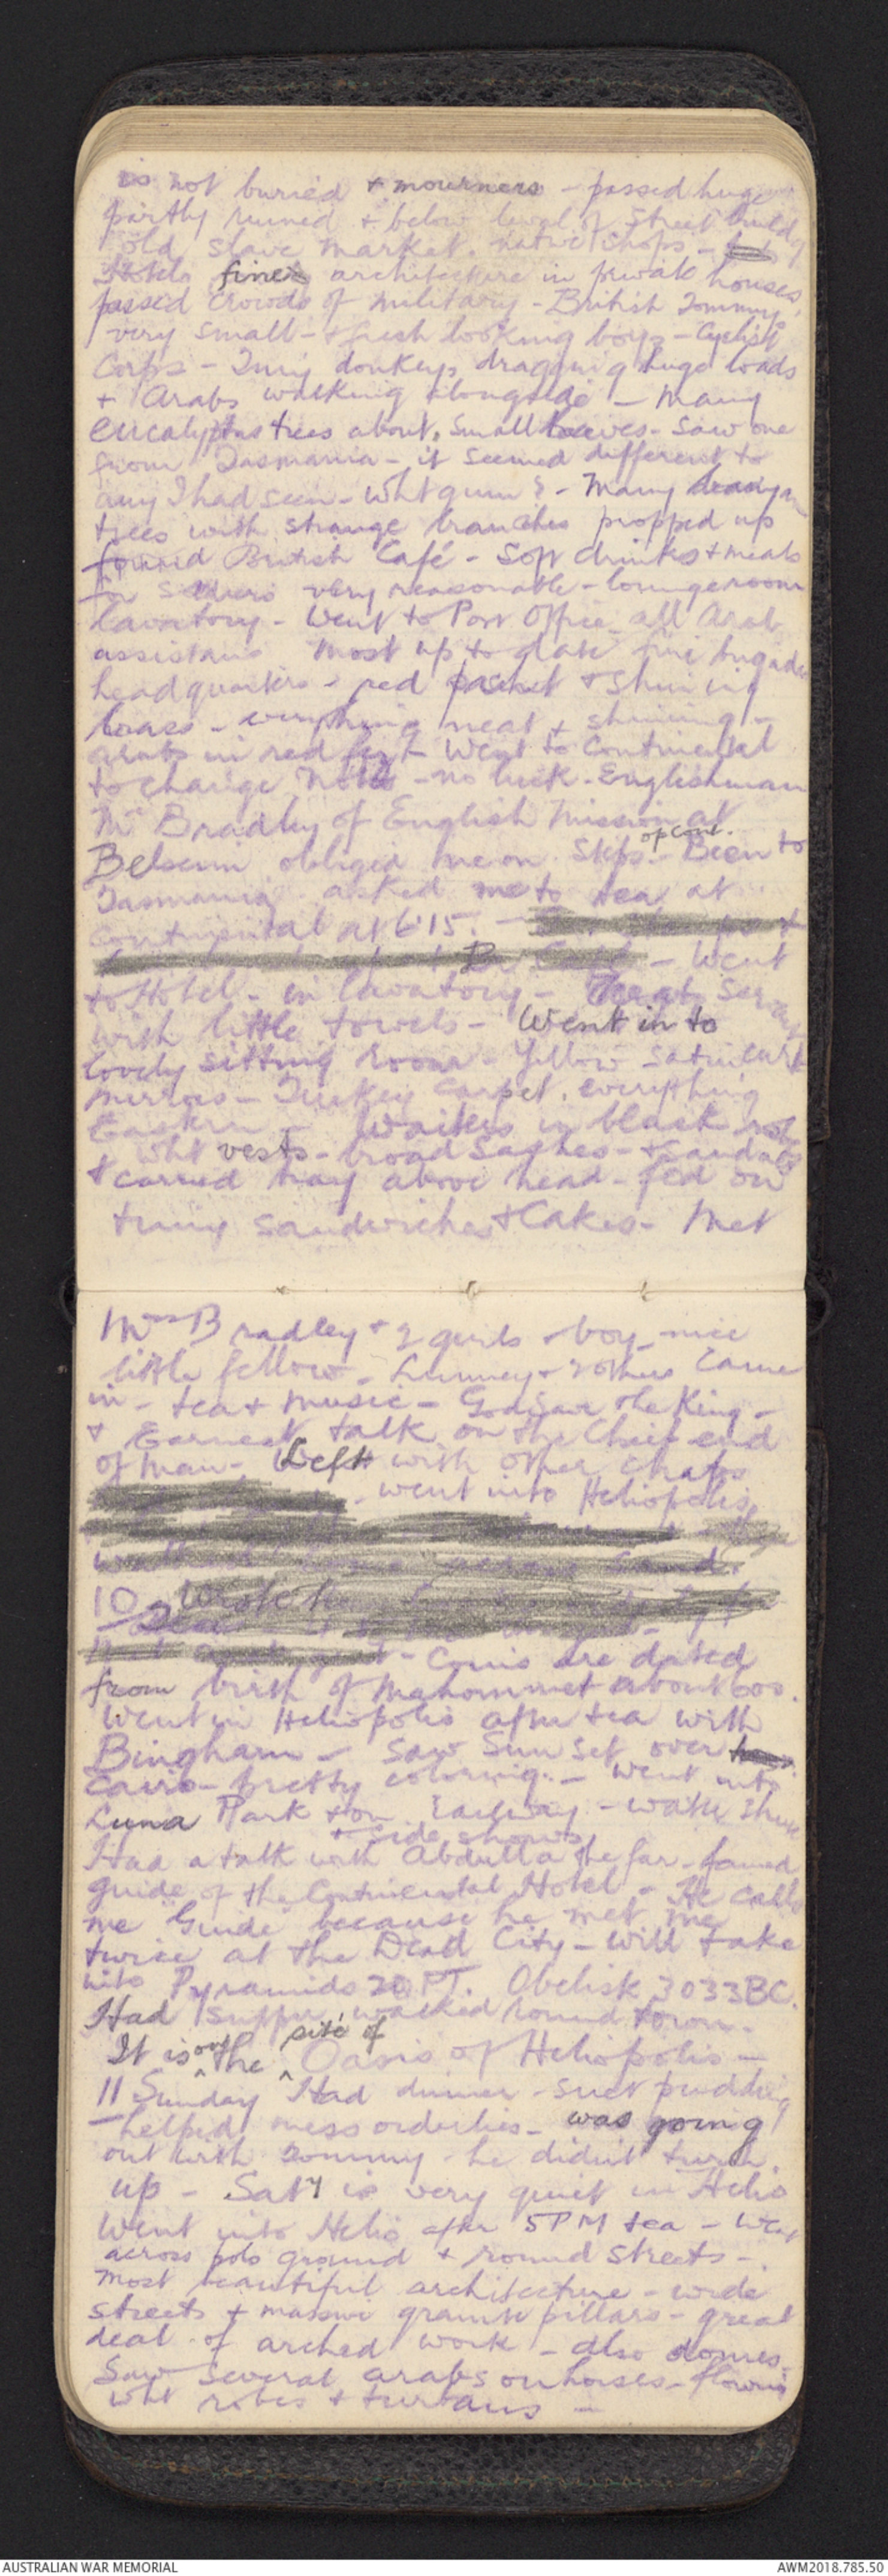 is not buried + mourners - passed huge
partly ruined + below level of Street buildg
old slave market. native shops -
Hotels fines architecture in private houses,
passed crowds of military - British Tommy,
very small - + fresh looking boys - Cyclist
Corps - Tiny donkeys dragging huge loads
+ Arabs walking alongside - Many
eucalyptus trees about, Small leaves - Saw one
from Tasmania - it seemed different to
any I had seen - wht gum? - Many
trees with strange branches propped up
found British Café - Soft drinks + meals
for very reasonable - lounge room
lavatory - Went to Post Office all Arab
assistants Most up to date fire brigade
headquarters - red + Shining
brass - everything neat + shining -
arabs in red fez - Went to Continental
to change note - no luck - Englishman
Mr Bradley of English Mission at
op cont.
obliged me on Steps - Been to
Tasmania asked me to tea at
Continental at 6.15. -
- Went
to Hotel - in lavatory -
with little towels - Went in to
lovely sitting room - Yellow
mirrors - Turkey carpet, everything
Eastern - Waiters in black
wht vests - broad Sashes - + Sandals
+ carried tray above head - fed on
tiny sandwiches + Cakes - Met
Mrs Bradley + 2 girls + boy - nice
little fellow - + 2 others Came
in - tea + music - God Save the King -
+ Earnest talk on the Chief end
of Man - Left with other Chaps
- went into Heliopolis
10 Wrote
- Coins are dated
from birth of Mahommet about 600.
Went in Heliopolis after tea with
Bingham - Saw Sun Set over
Cairo - pretty coloring - Went into
Luna Park + on railway - water Shute
+ Side shows
Had a talk with Abdulla the far-famed
guide of the Continental Hotel - He calls
me "Guide" because he met me
twice at the Dead City - will take
into Pyramids 20 PT. Obelisk 3033 BC.
Had supper walked round town -
It is on the site of Oasis of Heliopolis -
11 Sunday Had dinner - suet pudding
- helped mess orderlies - was going
out with Tommy - he didn't turn
up - Saty is very quiet in Helio
Went into Helio after 5 PM tea - Went
across polo ground + round streets -
most beautiful architecture - wide
streets + massive granite pillars - great
deal of arched work - also domes
Saw several arabs on horses - flowing
wht robes + turbans -
AUSTRALIAN WAR MEMORIAL
AWM2018.785.50